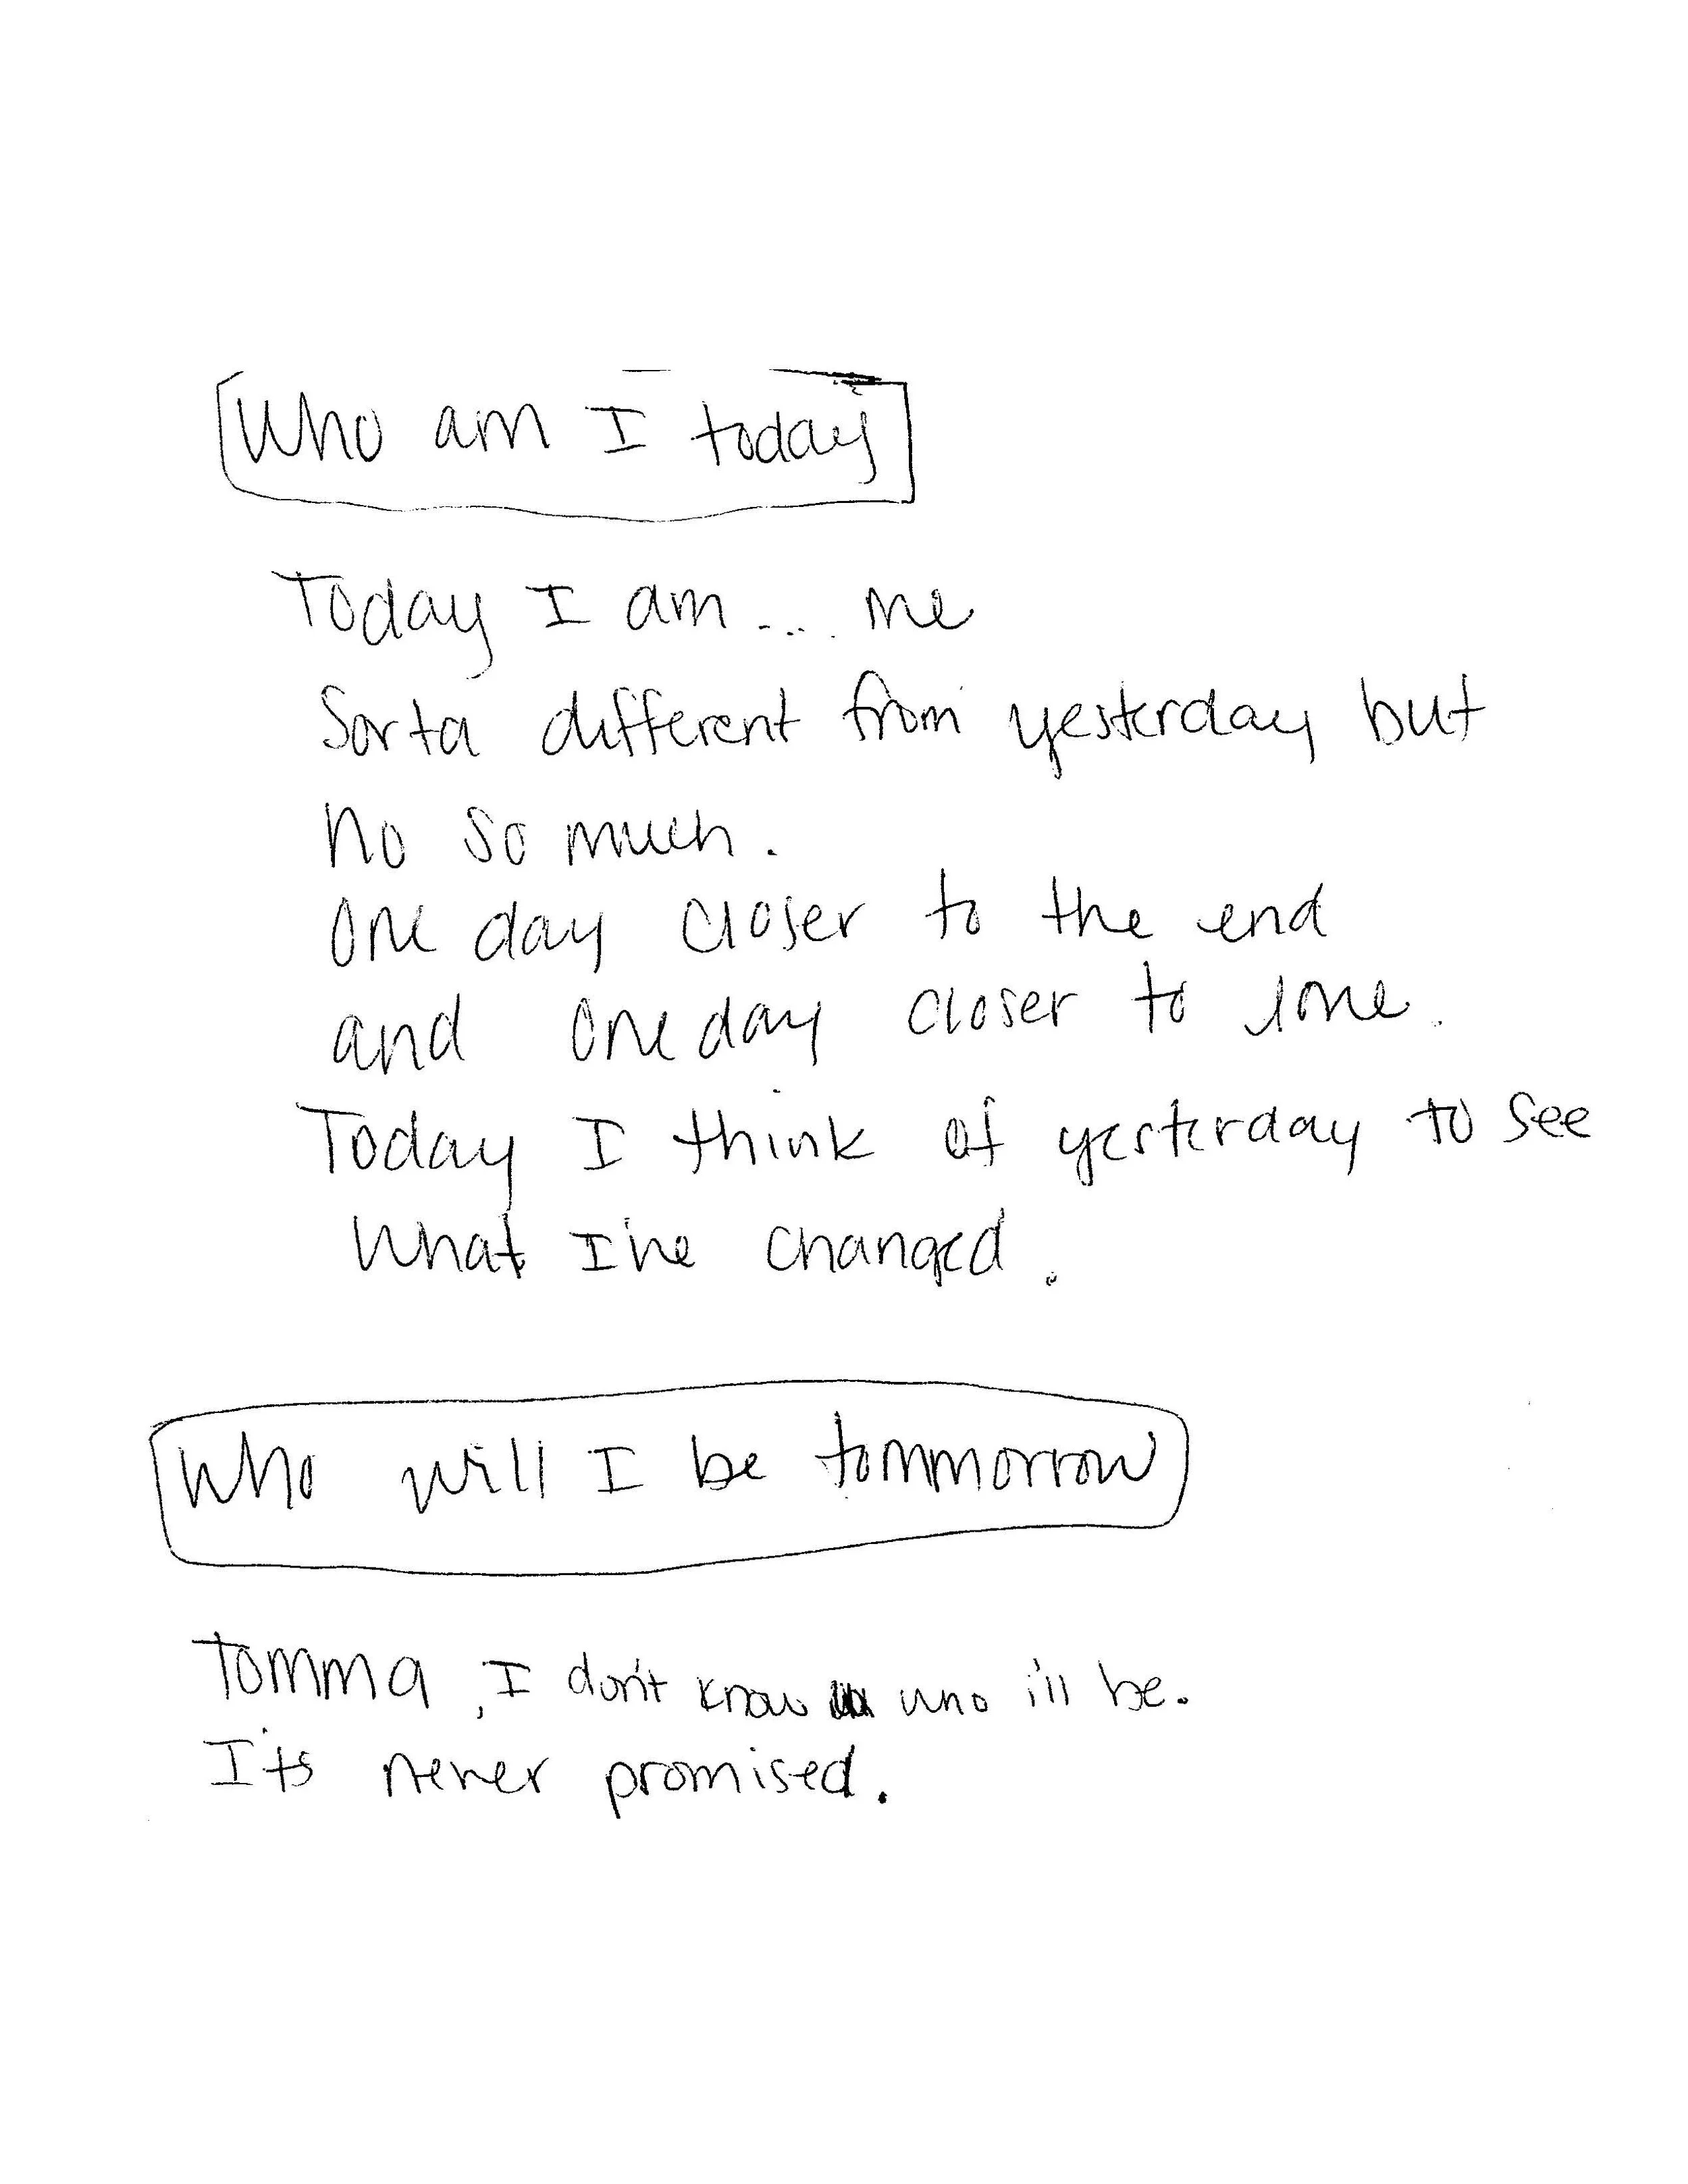 Who am I today
Today I am... me
Sorta different from yesterday but
no so much.
One day closer to the end
and one day closer to love.
Today I think of yesterday to see
what I've changed.
Who will I be tommorrow
Tomma, I don't know who i'll be.
It's never promised.